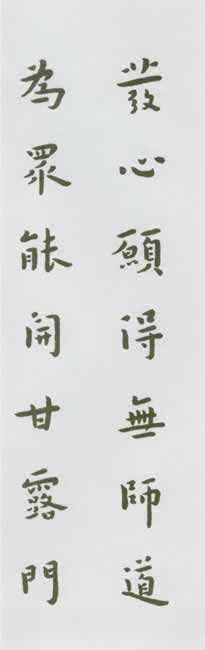 發心願得無師道
為眾能開甘露門